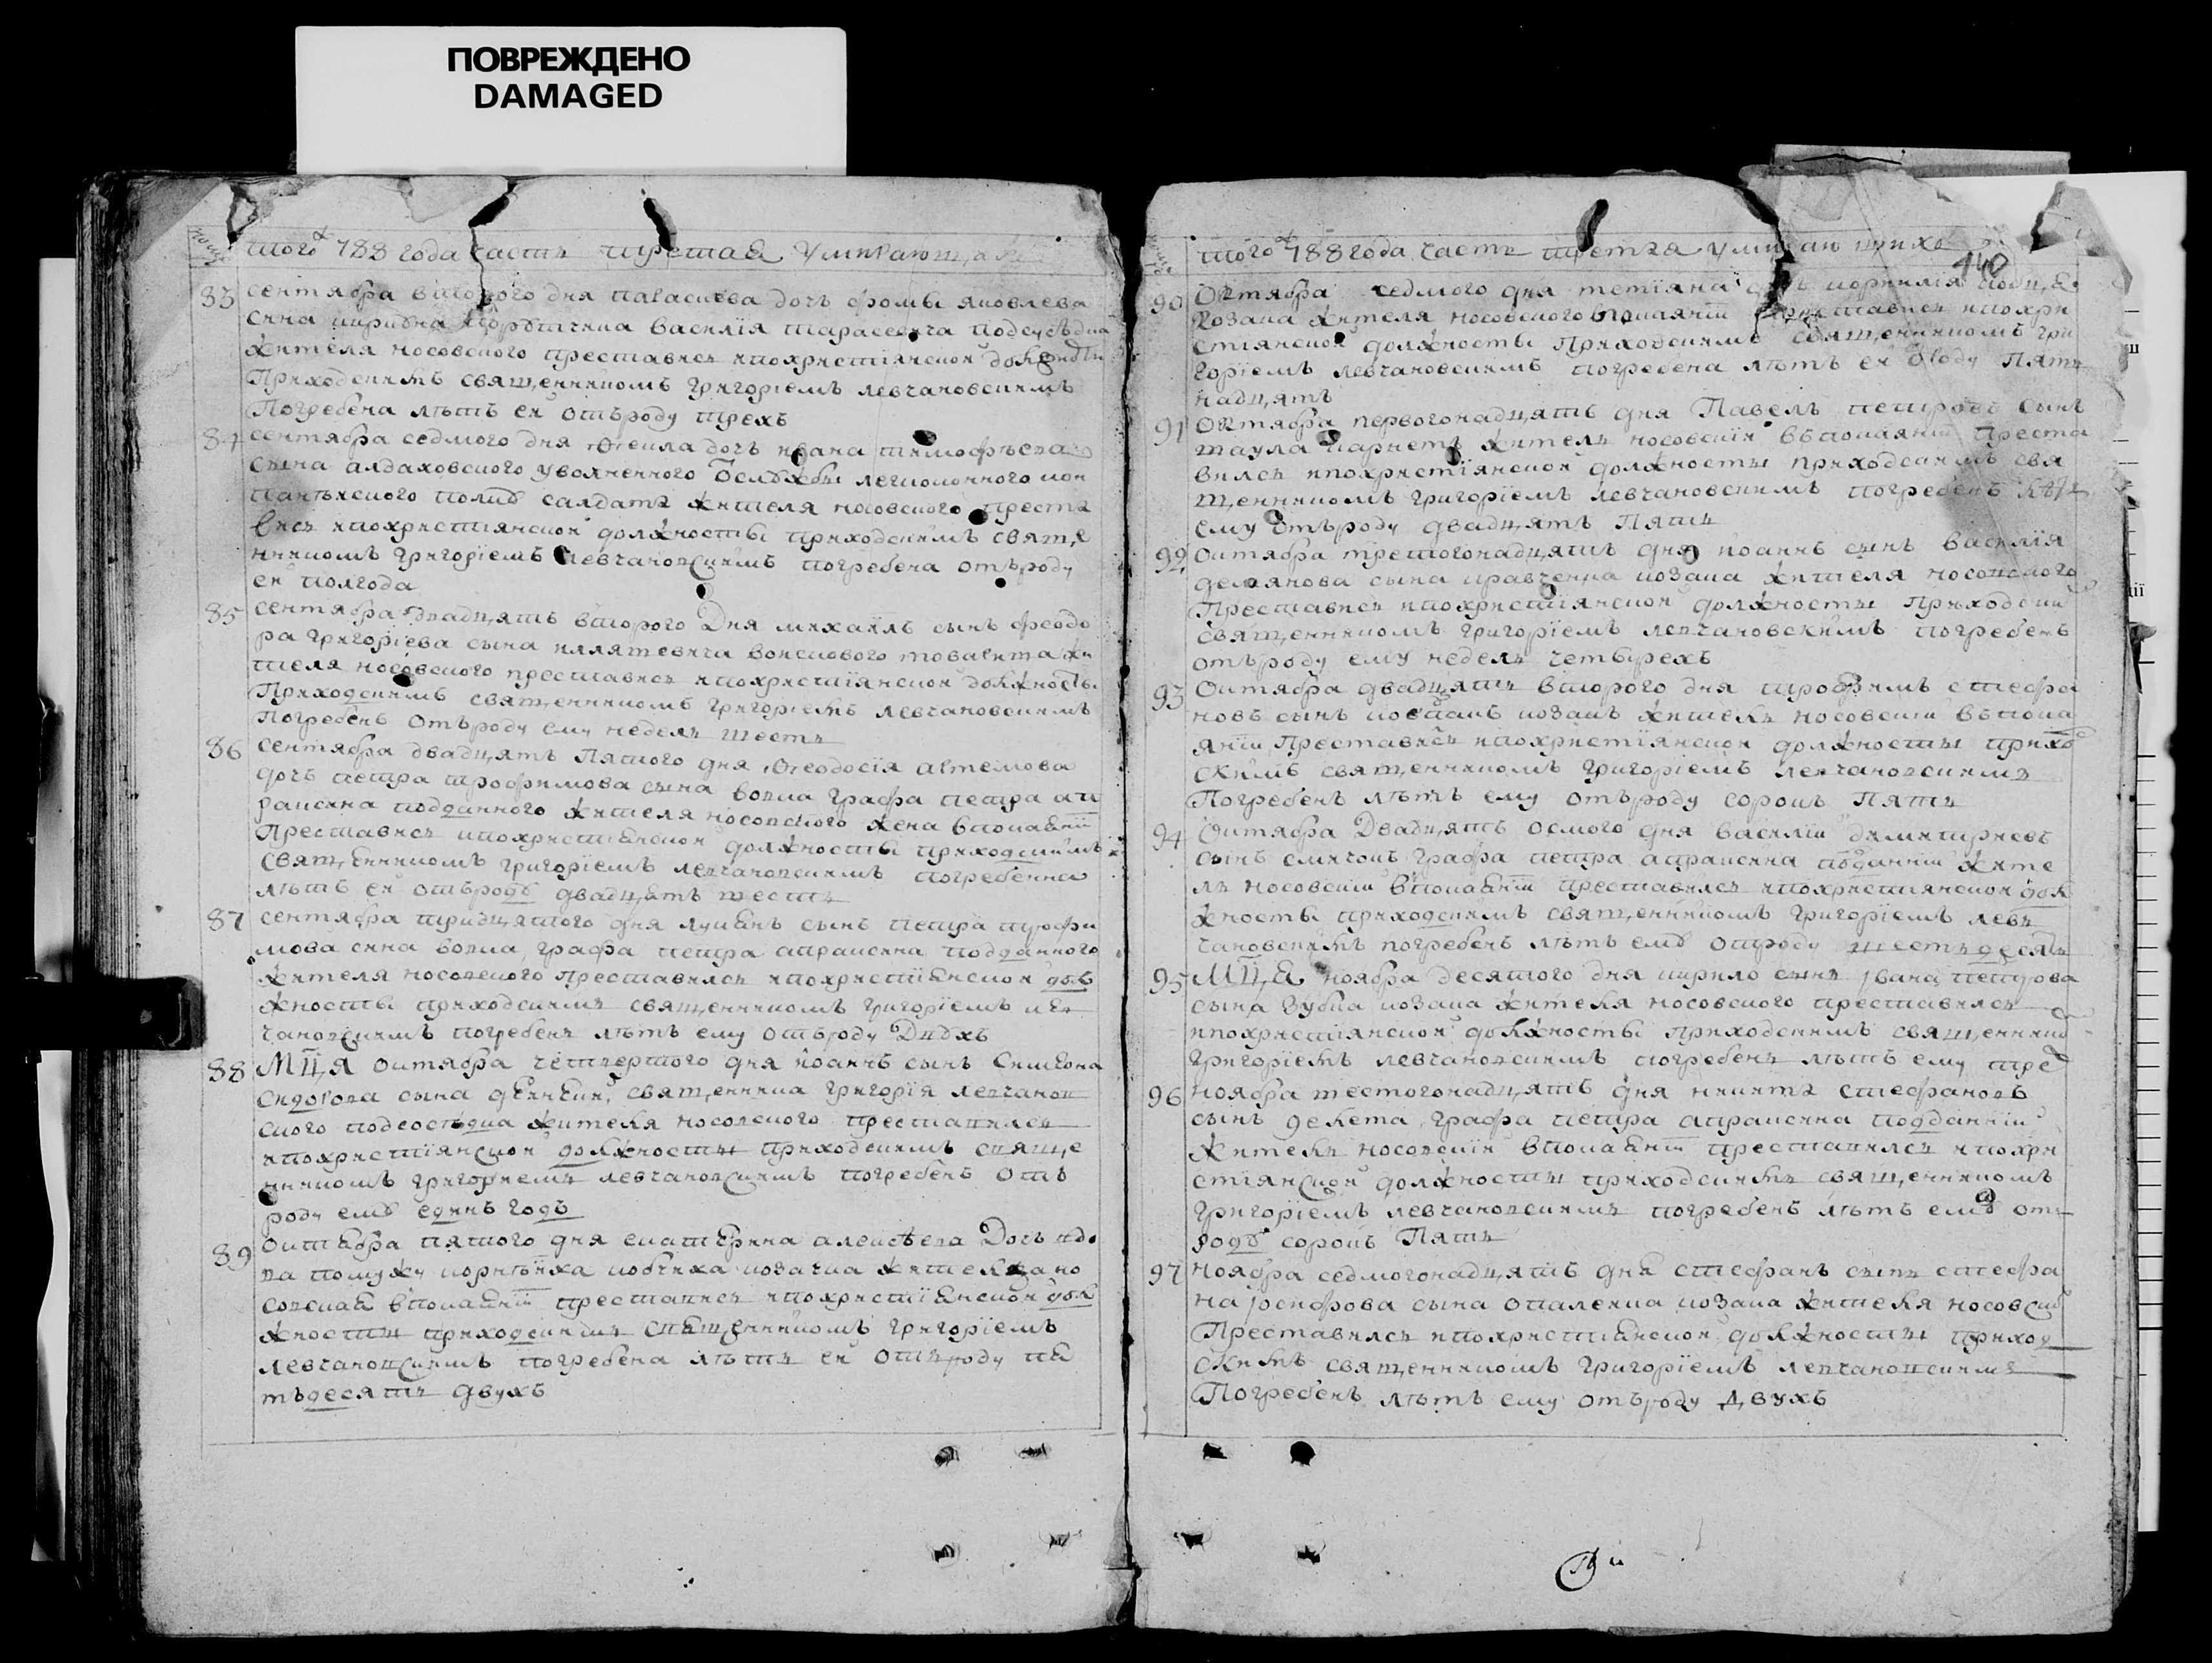 ПОВРЕЖДЕНО
DAMAGED
того 1788 года часть третая умирающ
83 сентября второго дня параскева дочь фомы яковлева
сина василія тарасевича подсуседка
жителя носовского преставись ипохристіянской должности
Приходскимъ священникомъ григоріемъ левчановскимъ
Погребена лѣтъ ей отъроду трехъ
84 сентября седмого дня Ѳекла дочь ивана тимофѣева
сина алдаховского уволненного ѿ службы легионного
полку салдата жителя носовского преста
вись ипохристіянской должности приходскимъ свяще
нникомъ григоріемъ левчановскимъ погребена отъроду
ей полгода
85 сентября двадцять второго Дня михаилъ сынъ феодо
ра григоріева сына иляшевича войскового товариша жи
теля носовского преставись ипохристіянской должность
Приходскимъ священникомъ григоріемъ левчановскимъ
Погребенъ отъроду ему недель шесть
86 сентября двадцять Пятого дня Ѳеодосія артемова
дочь петра трофимова сына вовка графа петра ап
раксина подданного жителя носовского жена впокаяніи
Преставись ипохристіянской должносты приходскимъ
священникомъ григоріемъ левчановскимъ погребенна
лѣтъ ей отъроду двадцять шесть
87 сентября тридцятого дня лукянъ сынъ петра трофи
мова сина вовка, графа петра апраксина подданного
жителя носовского преставился ипохристіянской дол
жносты приходскимъ священникомъ григоріемъ лев
чановскимъ погребенъ лѣтъ ему отъроду Двохъ
88 Мц,я октября четвертого дня іоаннъ сынъ Симеона
сидорова сына священника григорія левчанов
ского подсоседка жителя носовского преставился
ипохристіянской должносты приходскимъ свяще
нникомъ григориемъ левчановскимъ погребенъ отъ
роду ему единъ годъ
89 Октября пятого дня екатерина алексѣева Дочь вдо
ва помужу козачка жителка но
совская впокаяніи преставись ипохристіянской дол
жносты приходскимъ священникомъ григоріемъ
левчановскимъ погребена лѣтъ ей отъроду пя
тьдесятъ двухъ
того 1788 года часть третая умирающихъ
140
90 Октября седмого дня тетіяна корнилія
козака жителя носовского впокаяніи преставись ипохри
стіянской должносты Приходскимъ священникомъ гри
горіемъ левчановскимъ погребена лѣтъ ей отроду Пять
надцять
91 Октября первогонадцять дня Павелъ петровъ сынъ
житель носовскій въпокаяніи преста
вился ипохристіянской должносты приходскимъ свя
щенникомъ григоріемъ левчановскимъ погребенъ лѣтъ
ему отъроду двадцять Пять
92 Октября третогонадцять дня іоаннъ сынъ василія
демянова сына кравченка козака жителя носовского
Преставись ипохристіянской должносты Приходски
священникомъ григоріемъ левчановскимъ погребенъ
отъроду ему недель четырехъ
93 Октября двадцять второго дня трофимъ стефа
новъ сынъ козакъ житель носовскій въпока
яніи Преставись ипохристіянской должносты прихо
скимъ священникомъ григоріемъ левчановскимъ
Погребенъ лѣтъ ему отъроду сорокъ Пять
94 Октября Двадцять осмого дня василій димитриевъ
сынъ графа петра апраксина подданній жите
ль носовскій впокаяніи преставился ипохристіянской дол
жносты приходскимъ священникомъ григоріемъ лев
чановскимъ погребенъ лѣтъ ему отроду шестьдесять
95 Мц,я ноября десятого дня кирило сынъ івана петрова
сына зубка козака жителя носовского преставился
ипохристіянской должносты приходскимъ священнико
григоріемъ левчановскимъ погребенъ лѣтъ ему
96 ноября шестогонадцять дня никита стефановъ
сынъ графа петра апраксина подданній
житель носовскій впокаяніи преставился ипохри
стіянской должносты приходскимъ священникомъ
григоріемъ левчановскимъ погребенъ лѣтъ ему от
роду сорокъ Пять
97 ноября седмогонадцять дня стефанъ сынъ стефа
на іосифова сына опаленка козака жителя носовско
Преставился ипохристіянской должносты приход
скимъ священникомъ григоріемъ левчановскимъ
Погребенъ лѣтъ ему отъроду двухъ